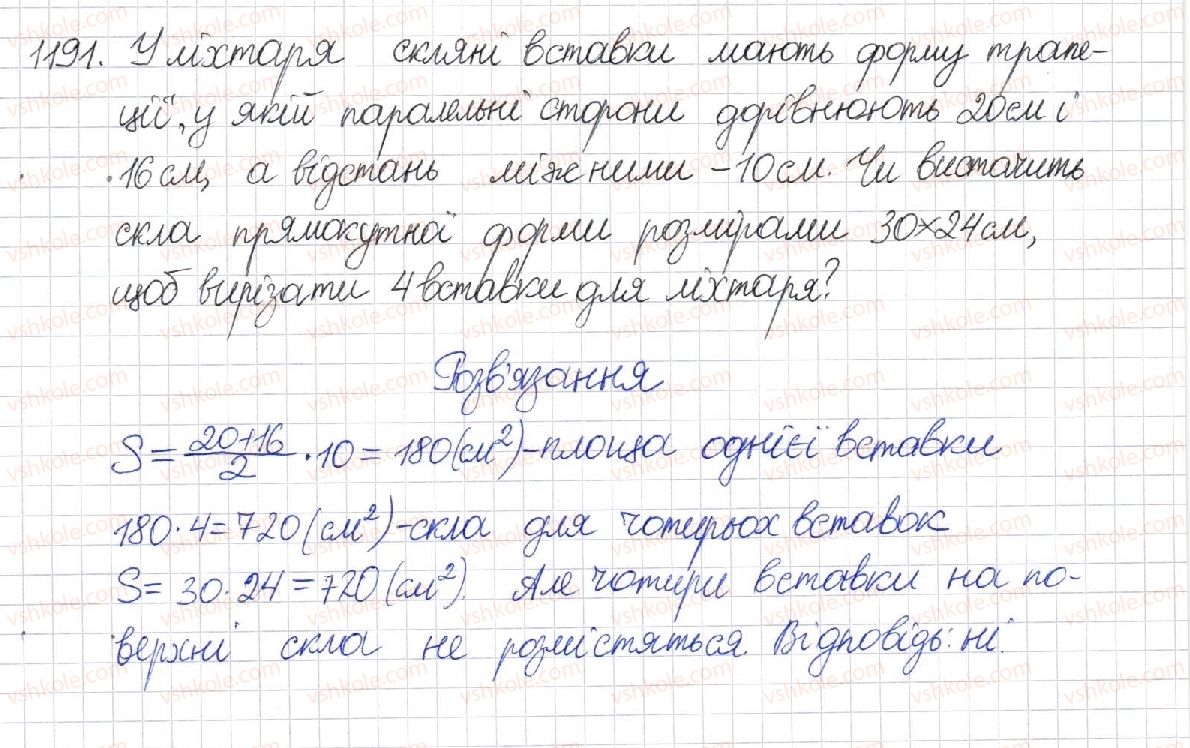 1191. У ліхтаря скляні вставки мають форму трапе-
ції, у якій паралельні сторони дорівнюють 20см і
16см, а відстань між ними – 10см. Чи вистачить
скла прямокутної форми розмірами 30×24см,
щоб вирізати 4 вставки для ліхтаря?
Розв'язання
S = (20+16)/2 · 10 = 180 (см²) – площа однієї вставки
180 · 4 = 720 (см²) – скла для чотирьох вставок
S = 30 · 24 = 720 (см²). Але чотири вставки на по-
верхні скла не розмістяться. Відповідь: ні.
vshkole.com